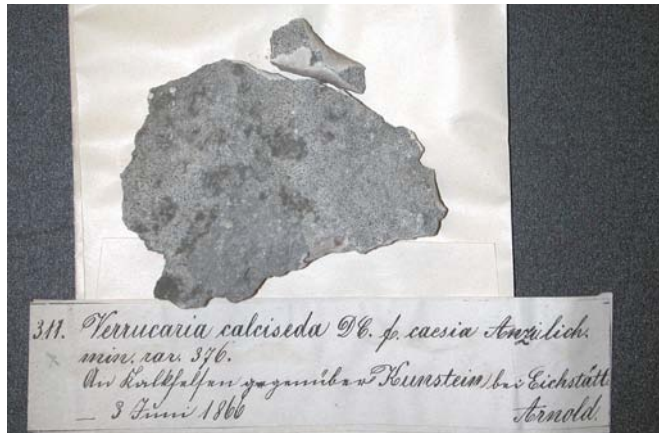 311. Verrucaria calciseda DC. f. caesia Anzi lich.
min. rar. 376.
An Kalkfelsen gegenüber Kunstein bei Eichstätt
— 3 Juni 1866 Arnold.